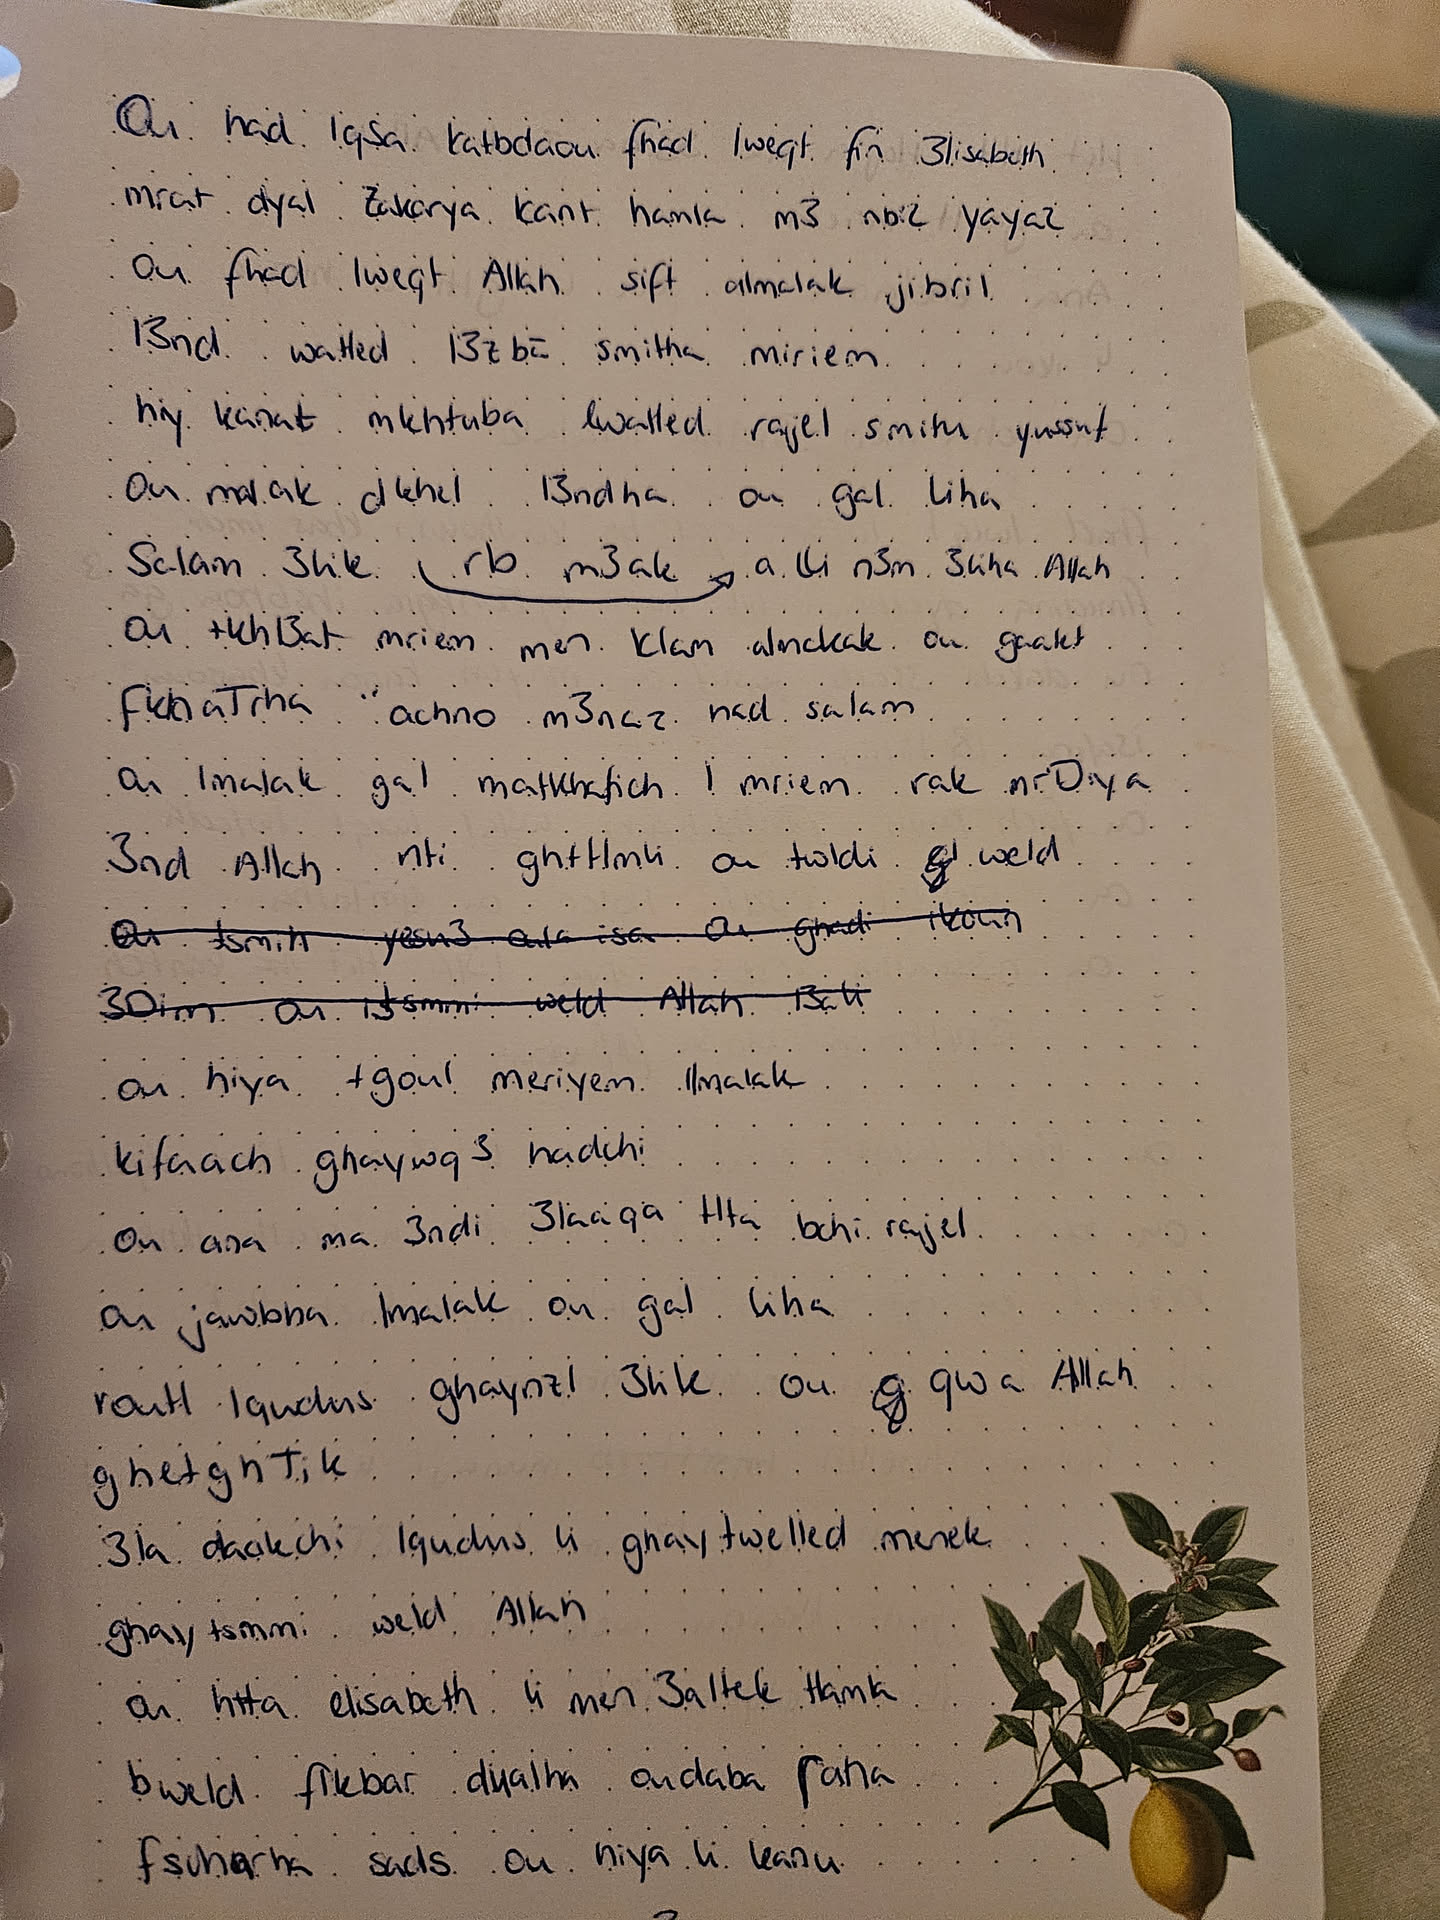 Ou had lqSa katbdaou fhad lweqt fin 3lisabeth
mrat dyal Zakarya kant hamla m3 nbi2 yaya2
ou fhad lweqt Allah sift almalak jibril
l3nd watled l3zba smitha miriem
hiy kanat mkhtuba lwatled rajel smitu yussuf
ou malak dkhel l3ndha ou gal liha
Salam 3lik rb m3ak a lli n3m 3liha Allah
ou tkhl3at mriem men klam almalak ou gaalet
fkhaTrha "achno m3na2 had salam
ou lmalak gal matkhafich l mriem rak mrDiya
3nd Allah nti ghttlmli ou twldi weld
ou tsmih yesu3 ala isa ou ghadi ikoun
3Dim ou itsmmi weld Allah l3ali
ou hiya tgoul meriyem llmalak
kifaach ghaywq3 hadchi
ou ana ma 3ndi 3laaqa tta bchi rajel
ou jawbha lmalak ou gal liha
routl lqudus ghaynzl 3lik ou qwa Allah
ghetghTik
3la daakchi lqudus li ghaytwelled menek
ghaytsmmi weld Allah
ou htta elisabeth li men 3altek tlamla
bweld fikbar dyalha oudaba raha
fschharha sads ou hiya li kanu